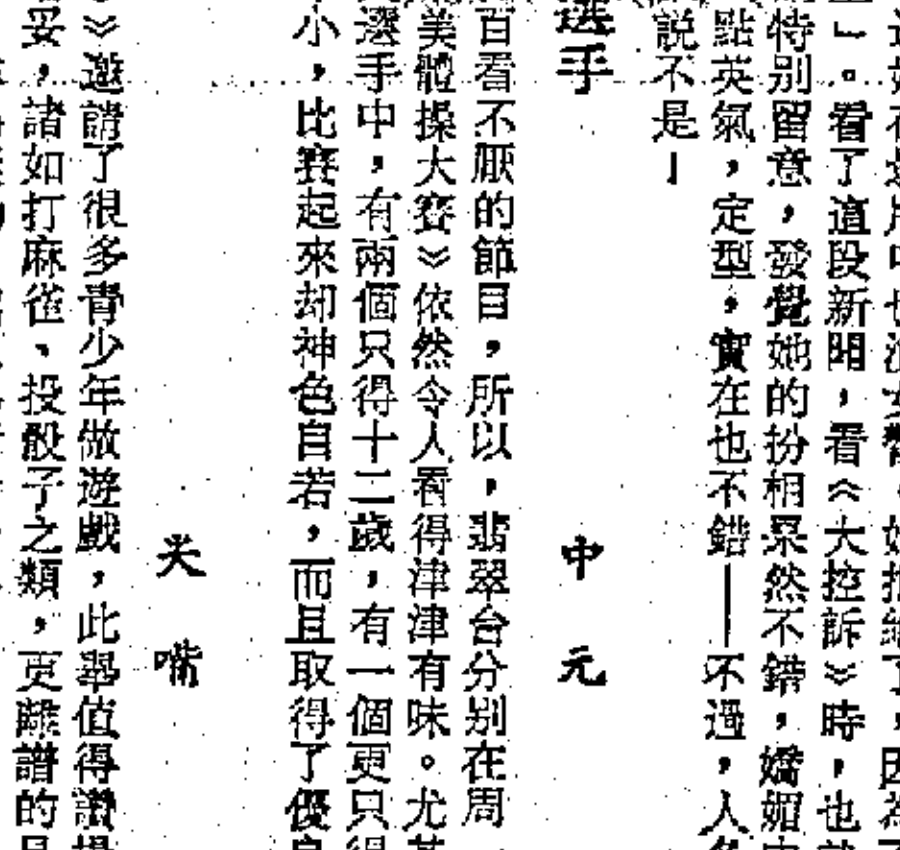 』。看了這段新聞，看《大控訴》時，也
特別留意，發覺她的扮相果然不錯，嬌媚
點英氣，定型，實在也不錯——不過，人
說不是！
選手
中元
百看不厭的節目，所以，翡翠台分別在周
美體操大賽》依然令人看得津津有味。尤其
選手中，有兩個只得十二歲，有一個更只得
小，比賽起來却神色自若，而且取得了優良
尖嘴
》邀請了很多青少年做遊戲，此舉值得讚揚
妥，諸如打麻雀、投骰子之類，更離譜的是